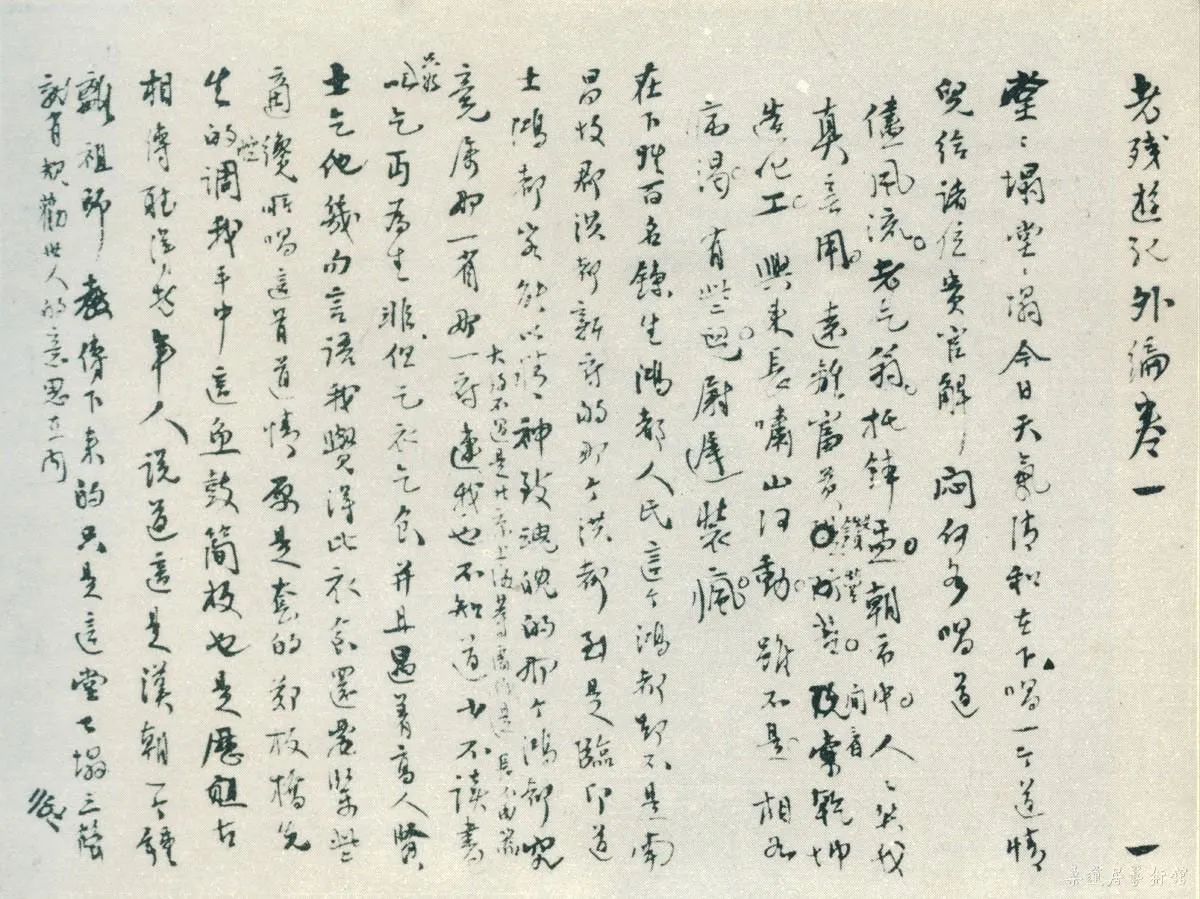 老殘遊記外編卷一
一
堂〻塌堂〻塌今日天氣清和在下唱一个道情
兒给諸位貴官解解悶何如唱道
儘風流老乞翁托鉢盂朝市中人人笑我
真無用遠離富貴鑽營苦閒看乾坤
造化工興來長嘯山河動雖不是相如
病渴有些兒尉遲裝瘋
在下姓百名鍊生鴻都人氏這个鴻都卻不是南
昌故郡洪都新府的那个洪都到是臨邛道
士鴻都客能以精神致魂魄的那个鴻都究
竟屬那一省那一府連我也不知道
大約不過是北京上海等處便是
少不讀書
只能
以乞丐為生非但乞衣乞食并且遇着高人賢
士乞他幾句言語我覺得比衣食還要緊些
適纔所唱這首道情原是套的鄭板橋先
生的調我手中這魚鼓簡板也是歷祖古
相傳聽得老年人說道這是漢朝一个鍾
離祖師傳下來的只是這堂堂塌三聲
就有規勸世人的意思在內
桑蓮居藝術館